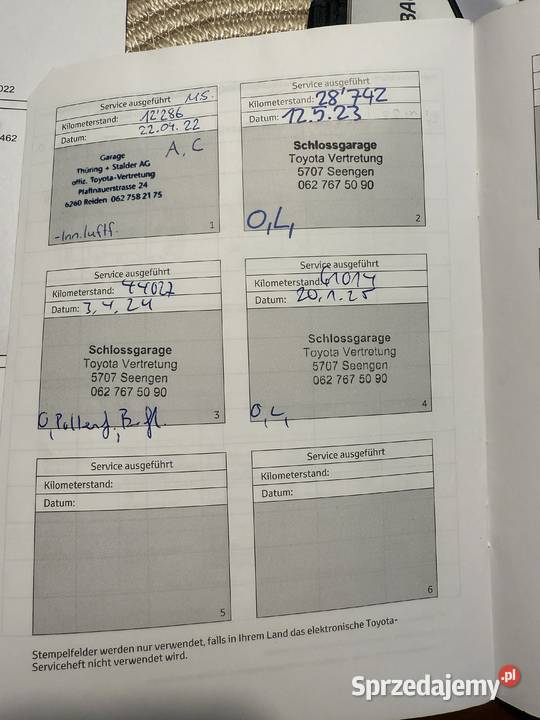 022
462
BA
Service ausgeführt MS.
Kilometerstand: 12'286
Datum: 22.04.22
A, C
Garage
Thüring + Stalder AG
offiz. Toyota-Vertretung
Pfaffnauerstrasse 24
6260 Reiden 062 758 21 75
-Inn.luftf.
1
Service ausgeführt
Kilometerstand: 28'742
Datum: 12.5.23
Schlossgarage
Toyota Vertretung
5707 Seengen
062 767 50 90
O,L,
2
Service ausgeführt
Kilometerstand: 44027
Datum: 3,4,24
Schlossgarage
Toyota Vertretung
5707 Seengen
062 767 50 90
O, Pollenf, B.fl.
3
Service ausgeführt
Kilometerstand: 61014
Datum: 20,1.25
Schlossgarage
Toyota Vertretung
5707 Seengen
062 767 50 90
O, L,
4
Service ausgeführt
Kilometerstand:
Datum:
5
Service ausgeführt
Kilometerstand:
Datum:
6
Stempelfelder werden nur verwendet, falls in Ihrem Land das elektronische Toyota-
Serviceheft nicht verwendet wird.
Sprzedajemy.pl